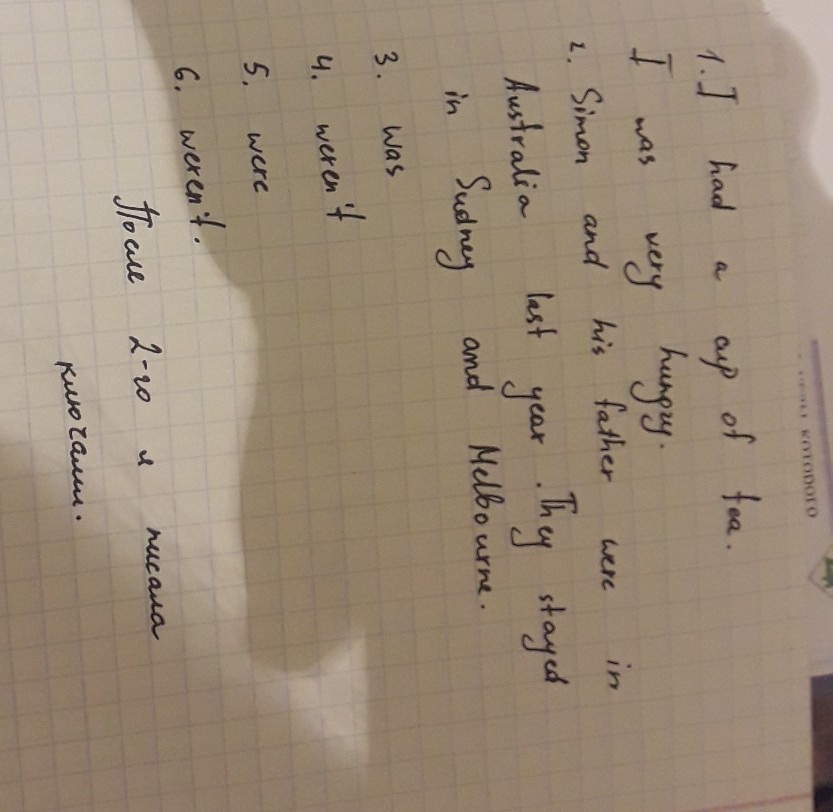 1. I had a cup of tea.
I was very hungry.
2. Simon and his father were in
Australia last year. They stayed
in Sudney and Melbourne.
3. was
4. weren't
5. were
6. weren't.
После 2-го я писала
ключами.
КОТОРОГО